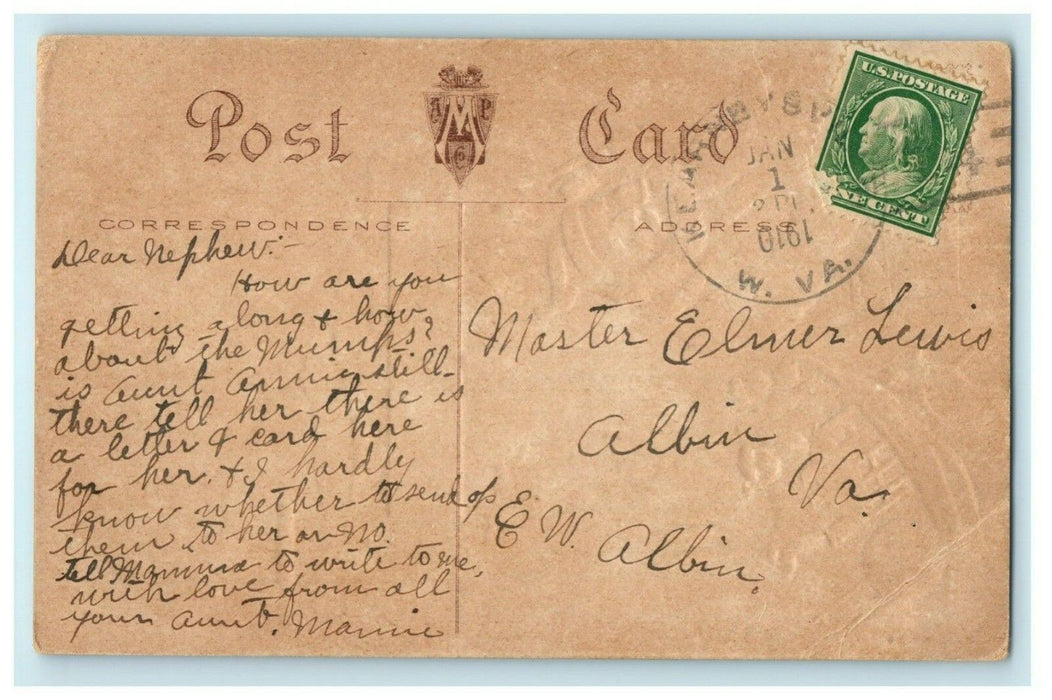 Post Card
CORRESPONDENCE
ADDRESS
U.S. POSTAGE
NE CENT
JAN
1
1910
W. VA.
Dear Nephew:-
How are you
getting along & how
about the Mumps?
is Aunt Annie still
there tell her there is
a letter & card here
for her. & I hardly
know whether to send
them to her or No.
tell Mamma to write to me.
with love from all
your Aunt. Mamie
Master Elmer Lewis
Albin
Va.
E W.
Albin.